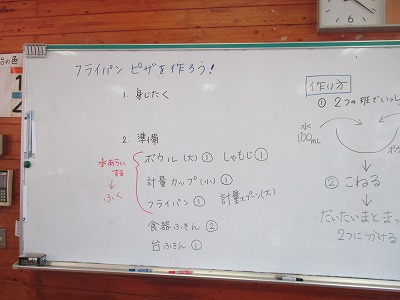 フライパン ピザを作ろう!
1. 身じたく
2. 準備
水あらいする
↓
ふく
ボウル(大)① しゃもじ①
計量カップ(小)①
フライパン① 計量スプーン(大)
食器ふきん②
台ふきん①
作り方
① 2つの班でいっし
水
100mL
↓
② こねる
↓
だいたいまとまっ
2つに分ける
の色
1
2